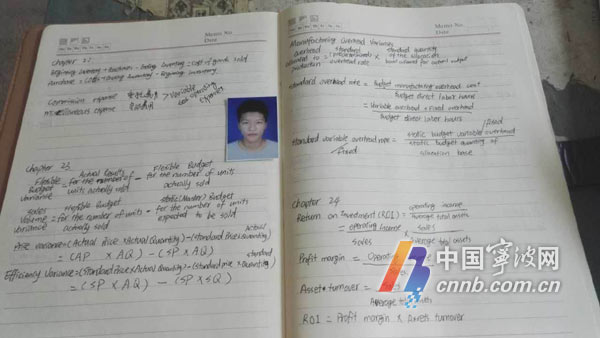 Memo No.
Date
Chapter 22
Beginning inventory + Purchases - Ending inventory = Cost of goods sold
Purchases = COGS + Ending inventory - Beginning inventory
Commission expense
Miscellaneous expense
> variable
expenses
Chapter 23
Flexible Budget Variance = Actual Results for the number of units actually sold - Flexible Budget for the number of units actually sold
Sales Volume Variance = Flexible Budget for the number of units actually sold - Static (Master) Budget for the number of units expected to be sold
Price variance = (Actual Price × Actual Quantity) - (Standard Price × Actual Quantity)
= (AP × AQ) - (SP × AQ)
Efficiency Variance = (Standard Price × Actual Quantity) - (Standard price × Standard Quantity)
= (SP × AQ) - (SP × SQ)
Memo No.
Date
Manufacturing Overhead Variances
overhead standard standard quantity
allocated to = overhead of the allocation
production rate base allowed for actual output
standard overhead rate = Budget manufacturing overhead cost
Budget direct labor hours
= Variable overhead + fixed overhead
Budget direct labor hours
fixed
standard variable overhead rate = static budget variable overhead
Fixed static budget quantity of
allocation base
Chapter 24
Return on Investment (ROI) = operating income
Average total assets
= operating income × sales
sales Average total assets
Profit margin =
Asset turnover =
Average total assets
ROI = Profit margin × Assets turnover
中国宁波网
cnnb.com.cn